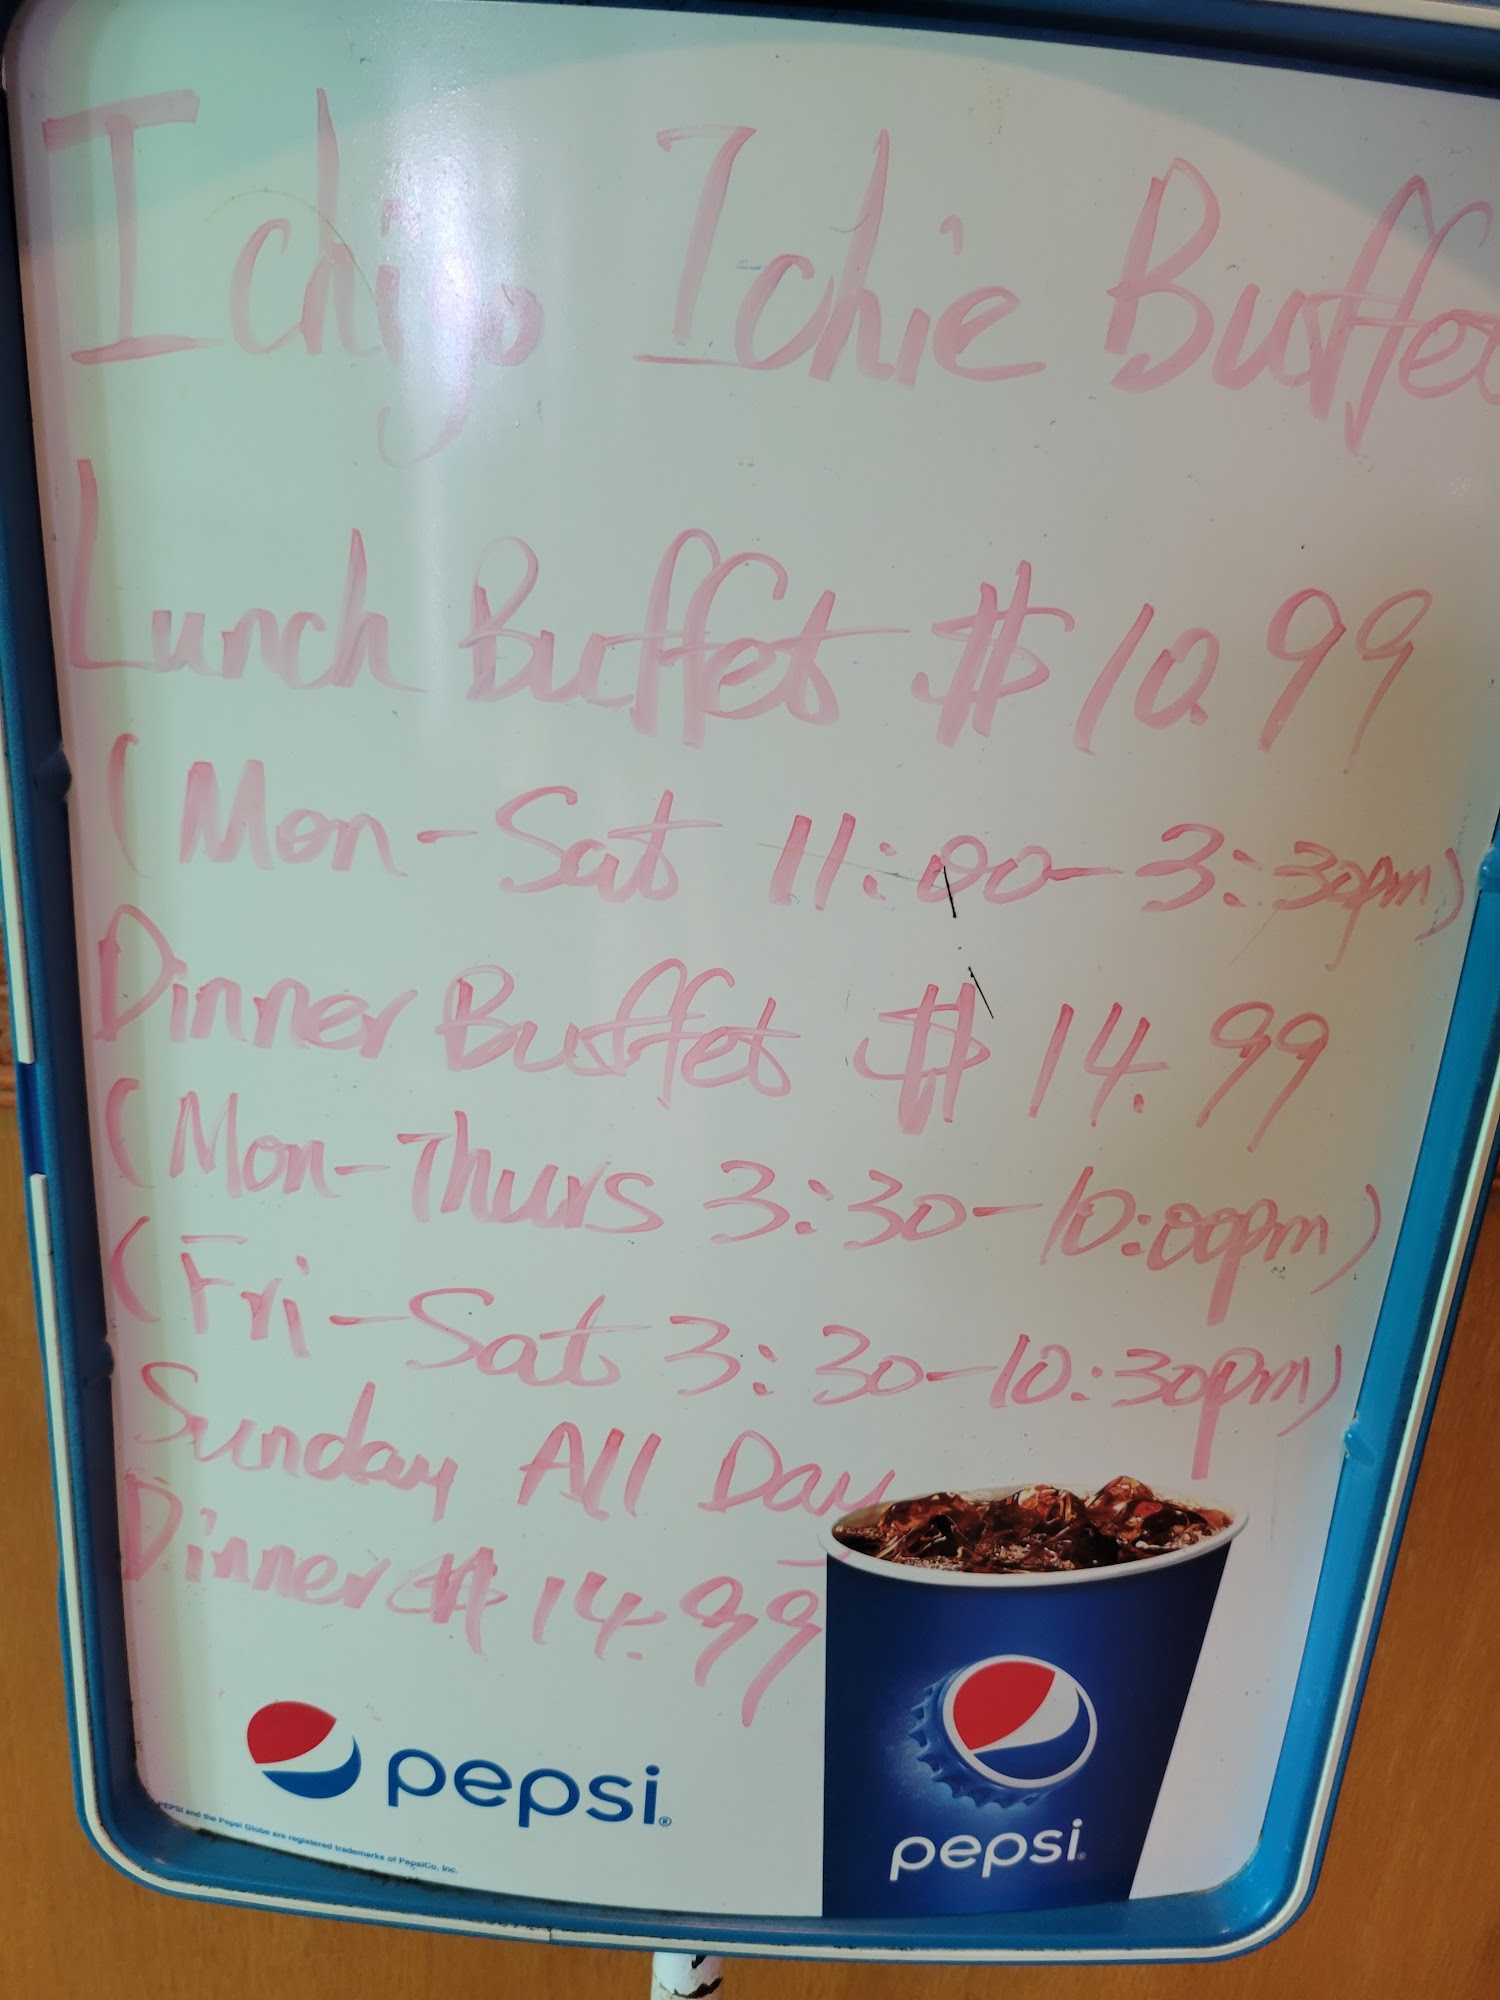 Ichigo Ichie Buffet
Lunch Buffet $10.99
(Mon-Sat 11:00-3:30pm)
Dinner Buffet $14.99
(Mon-Thurs 3:30-10:00pm)
(Fri-Sat 3:30-10:30pm)
Sunday All Day
Dinner $14.99
pepsi®
pepsi®
PEPSI and the Pepsi Globe are registered trademarks of PepsiCo, Inc.